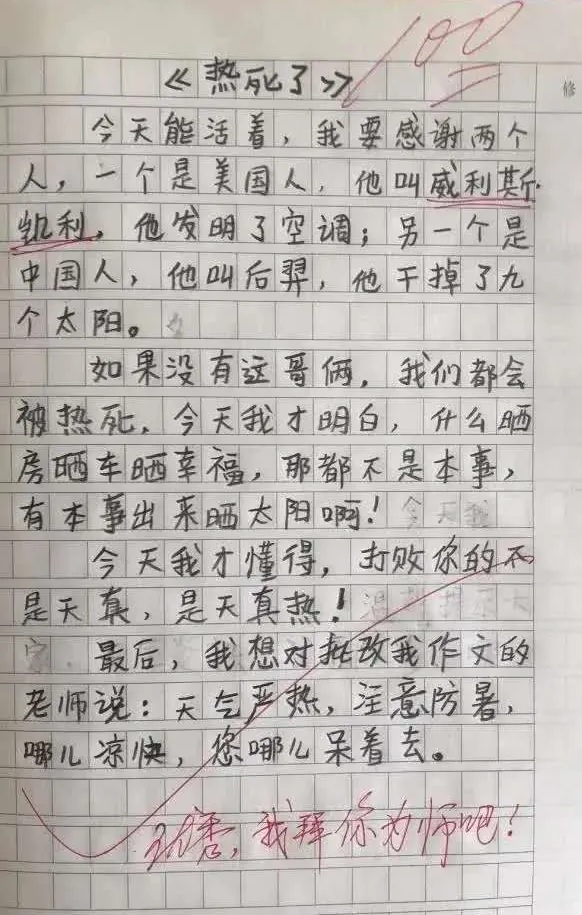 100
修
《热死了》
今天能活着，我要感谢两个
人，一个是美国人，他叫威利斯·
凯利，他发明了空调；另一个是
中国人，他叫后羿，他干掉了九
个太阳。
如果没有这哥俩，我们都会
被热死，今天我才明白，什么晒
房晒车晒幸福，那都不是本事，
有本事出来晒太阳啊！
今天我才懂得，打败你的不
是天真，是天真热！
最后，我想对批改我作文的
老师说：天气严热，注意防暑，
哪儿凉快，您哪儿呆着去。
优秀，我拜你为师吧！